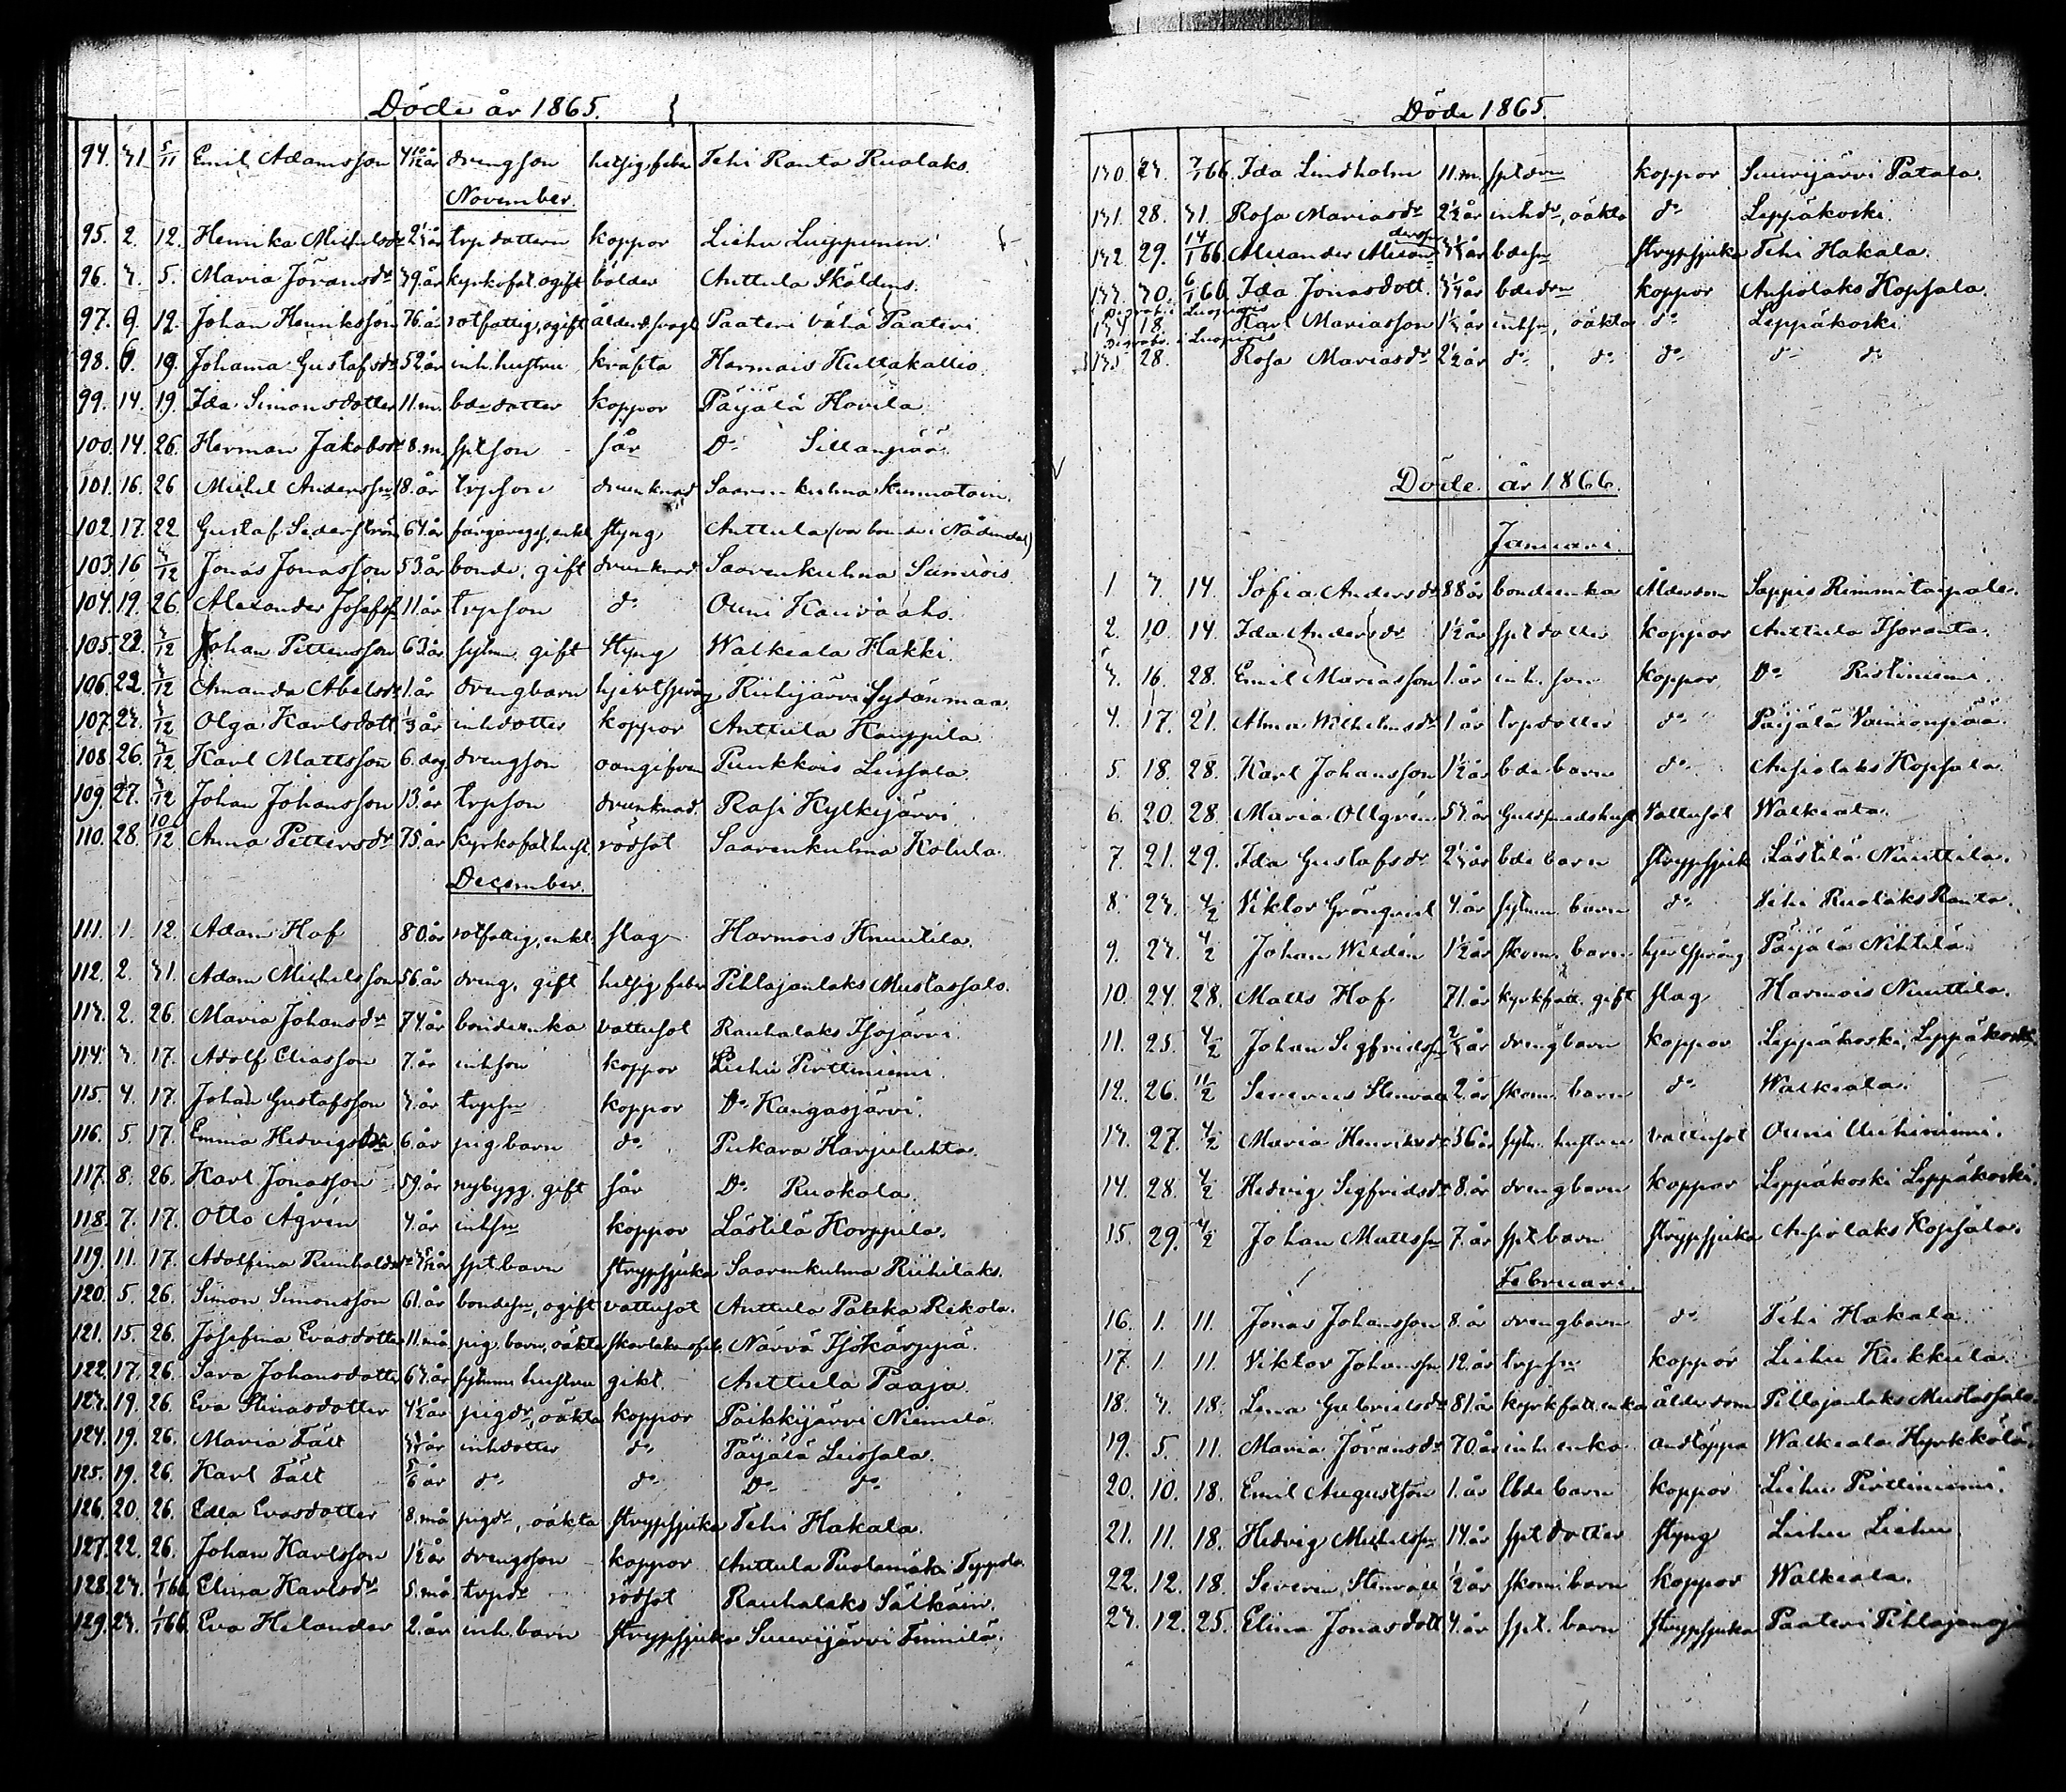 Döde år 1865.
94. 31 5/11 Emil Adamsson 4 10/12 år drengson hetsig feber Tehi Ranta Ruolaks.
November.
95. 2. 12. Henrika Michelsdr 2 1/3 år trpdottern koppor Liehu Luippunen
96. 3. 5. Maria Jöransdr 39. år kyrkofat. ogift bölder Anttula Sköldens.
97. 9. 12. Johan Henriksson 76. år rotfattig, ogift ålderd. svagh Paateri Vähä Paateri
98. 9. 19. Johanna Gustafsdr 52 år inh. hustru kräfta Harmois Kullakallio
99. 14. 19. Ida Simonsdotter 11. m. bdedotter koppor Päijälä Hovila
100. 14. 26. Herman Jakobss 8. m. sptson sår Do Sillanpää
101. 16. 26 Michel Andersson 18. år trpson drunknad Saarenkulma
102. 17. 22 Gustaf Sederström 64. år enkl styng Anttula (var bonde i Nådendal)
103. 16 3/12 Jonas Jonasson 53. år bonde, gift drunknad Saarenkulma Sunnois
104. 19. 26. Alexander Josefss 11. år trpson do Ouni Kauraaho
105. 22 3/12 Johan Pettersson 63. år sytnm gift styng Walkeala Hakki.
106. 22. 3/12 Amanda Abelsdr 1. år drengbarn hjertsprång Riihijärvi Sydänmaa.
107. 23. 3/12 Olga Karlsdott. 1/3 år inhdotter koppor Anttula Kauppila
108. 26. 3/12 Karl Mattsson 6. dag drengson oangifven Puukkois Leissala
109. 27. 3/12 Johan Johansson 13. år trpson drunknad. Rasi Kylkijärvi
110. 28. 10/12 Anna Pettersdr 75. år kyrkofat. hust. rödsot Saarenkulma Kolula
December.
111. 1. 12. Adam Hof 80. år rotfattig, enkl. slag Harmois Knuutila.
112. 2. 31. Adam Michelsson 56. år dreng, gift hetsig feber Pihlajanlaks Mustassalo.
113. 2. 26. Maria Johansdr 74. år bondeenka vattusot Rauhalaks Isojärvi
114. 3. 17. Adolf Eliasson 7. år inhson koppor Liehu Pirttiniemi.
115. 4. 17. Johan Gustafsson 3. år trpsn koppor Do Kangasjärvi.
116. 5. 17. Emma Hedvigsdr 6. år pigbarn do Pukara Harjuluhta
117. 8. 26. Karl Jonasson 59. år nybygg. gift sår Do Ruokola.
118. 7. 17. Otto Ågren 4. år inhsn koppor Lästilä Korppila.
119. 11. 17. Adolfina Reinholdsdr 3 5/12 år spt. barn strypsjuka Saarenkulma Riihilaks.
120. 5. 26. Simon Simonsson 61. år bondesn, ogift vattusot Anttula Pakka Rekola.
121. 15. 26. Josefina Evasdotter 11. må pig. barn, oäkta skarlakansfeb. Närvä Isokärppä.
122. 17. 26. Sara Johansdotter 63. år sytnm hustru gikt. Anttula Paaja
123. 19. 26. Eva Stinasdotter 4 1/2 år pigdr, oäkta koppor Paikkijärvi Niemelä.
124. 19. 26. Maria Fält 3 1/4 år inhdotter do Päijälä Leissala.
125. 19. 26. Karl Fält 5/6 år do do Do do
126. 20. 26. Edla Evasdotter 8. må pigdr, oäkta strypsjuka Tehi Hakala.
127. 22. 26. Johan Karlsson 1 1/2 år drengsson koppor Anttula Puolamäki
128. 23. 1/1 66 Elina Karlsdr 5. må. trpdr rödsot Rauhalaks Sälkäin.
129. 23. 1/1 66 Eva Helander 2. år inh. barn strypsjuka Suurijärvi Tunnila.
Döde 1865.
130. 23. 7/1 66. Ida Lindholm 11. m. sptdrn koppor Suurijärvi Patala.
131. 28. 31. Rosa Mariasdr 2 1/2 år inhdr, oäkta do Leppäkoski
132. 29. 14/1 66 Alexander Alexandersn 3 1/4 år bdesn strypsjuka Tehi Hakala.
133. 30. 6/1 66 Ida Jonasdott. 3 1/4 år bdedrn koppor Ansiolaks Kopsala.
i Luopiois
134 18. Karl Mariasson 1 1/3 år inhsn, oäkta do Leppäkoski
i Luopiois
135 28. Rosa Mariasdr 2 1/2 år do do do do do
Döde. år 1866.
Januari.
1 3. 14. Sofia Andersdr 88 år bondeenka Ålderdom Sappis Rimmitaipale.
2. 10. 14. Ida Andersdr 1 1/2 år sptdotter koppor Anttula Isoranta.
3. 16. 28. Emil Mariasson 1. år inh. son koppor Do Ristiniemi.
4. 17. 21. Alma Wilhelmsdr 1 år trpdotter do Päijälä Vainionpää
5. 18. 28. Karl Johansson 1 1/2 år bde barn do Ansiolaks Kopsala
6. 20. 28. Maria Ollgren 53. år Guldsmedshust Vattusot Walkeala.
7. 21. 29. Ida Gustafsdr 2 1/3 år bde barn strypsjuk Lästilä Nuuttila.
8. 23. 4/2 Viktor Grönqvist 4. år sytnm barn do Tehi Ruolaks Ranta.
9. 23. 4/2 Johan Wilden 1 1/2 år skom. barn hjertsprång Päijälä Nihtilä.
10. 24. 28. Matts Hof 71. år kyrkfatt. gift slag Harmois Nuuttila.
11. 25. 4/2 Johan Sigfridssn 2/3 år drengbarn koppor Leppäkoski, Leppäkoski
12. 26. 11/2 Severus Stenvall 2. år skom. barn do Walkeala.
13. 27. 4/2 Maria Henriksdr 36 år sytn. hustru Vattusot Ouni Uuhiniemi.
14. 28. 4/2 Hedvig Sigfridsdr 8. år drengbarn koppor Leppäkoski Leppäkoski.
15. 29. 4/2 Johan Mattssn 7. år spt. barn strypsjuka Ansiolaks Kopsala.
Februari.
16. 1. 11. Jonas Johansson 8. år drengbarn do Tehi Hakala.
17. 1. 11. Viktor Johanssn 12. år trpsn koppor Liehu Kukkula.
18. 3. 18. Lena Gabrielsdr 81. år kyrkfatt. enka ålderdom Pihlajanlaks Mustassalo.
19. 5. 11. Maria Jöransdr 70. år inh. enka andtäppa Walkeala Hyrkkölä.
20. 10. 18. Emil Augustson 1. år lbde barn koppor Liehu Pirttiniemi.
21. 11. 18. Hedvig Michelsn 14. år sptdotter styng Liehu Liehu
22. 12. 18. Severin Stenvall 1/2 år skom. barn koppor Walkeala.
23. 12. 25. Elina Jonasdott 4. år spt. barn strypsjuka Paateri